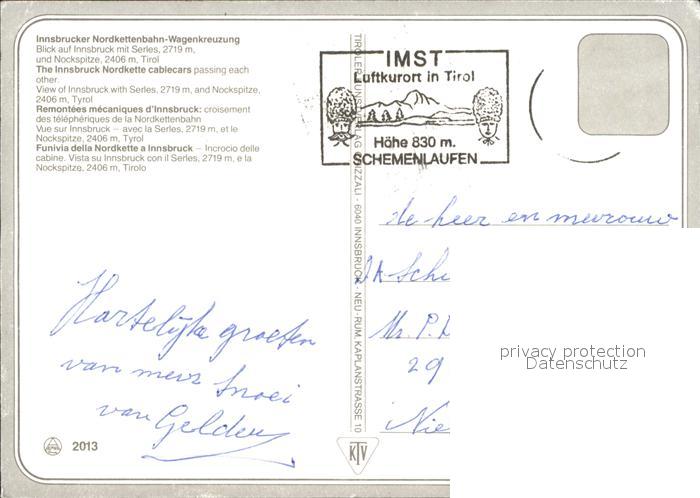 Innsbrucker Nordkettenbahn-Wagenkreuzung
Blick auf Innsbruck mit Serles, 2719 m,
und Nockspitze, 2406 m, Tirol
The Innsbruck Nordkette cablecars passing each
other.
View of Innsbruck with Serles, 2719 m, and Nockspitze,
2406 m, Tyrol
Remontées mécaniques d'Innsbruck: croisement
des téléphériques de la Nordkettenbahn
Vue sur Innsbruck – avec la Serles, 2719 m, et le
Nockspitze, 2406 m, Tyrol
Funivia della Nordkette a Innsbruck – Incrocio delle
cabine. Vista su Innsbruck con il Serles, 2719 m, e la
Nockspitze, 2406 m, Tirolo
IMST
Luftkurort in Tirol
Höhe 830 m.
SCHEMENLAUFEN
TIROLER KUNSTVERLAG CHIZZALI - 6040 INNSBRUCK - NEU-RUM, KAPLANSTRASSE 10
de heer en mevrouw
Sche
Mr. P.
29
Nie
Hartelijke groeten
van mevr Snoei
van Gelder
2013
KTV
privacy protection
Datenschutz